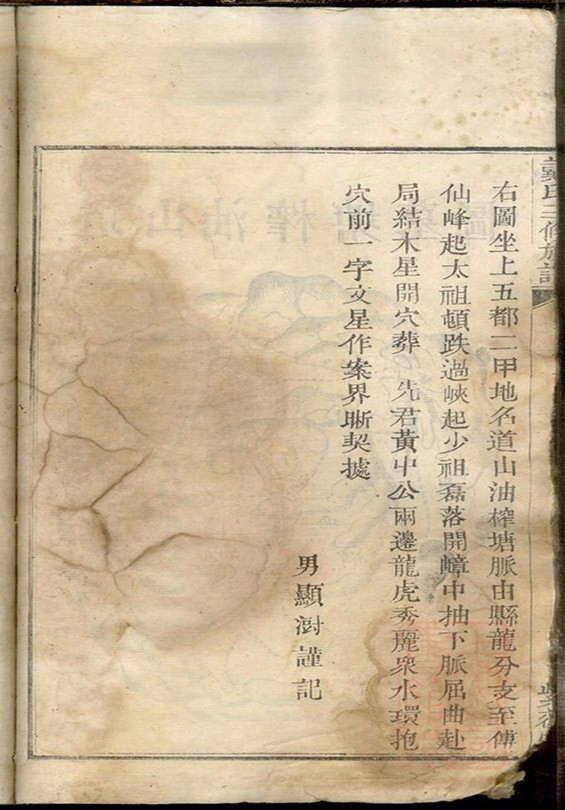 戴氏三修族譜
右圖坐上五都二甲地名道山油榨塘脈由縣龍分支至傅
仙峰起太祖頓跌過峽起少祖磊落開嶂中抽下脈屈曲赴
局結木星開穴葬 先君黃中公兩邊龍虎秀麗衆水環抱
穴前一字文星作案界晣契據
男顯澍謹記